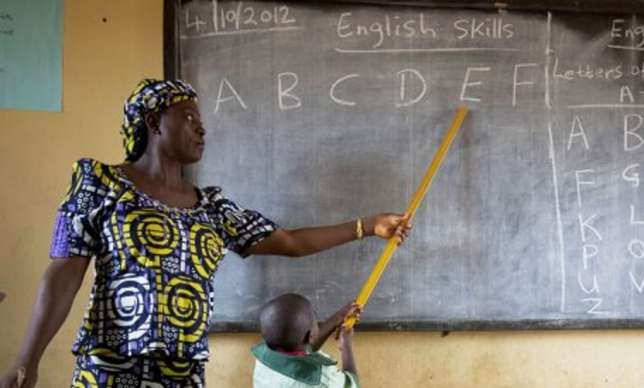 4/10/2012
English Skills
A B C D E F
Eng
Letters of
A
A B
F G
K L
P Q
U V
Z